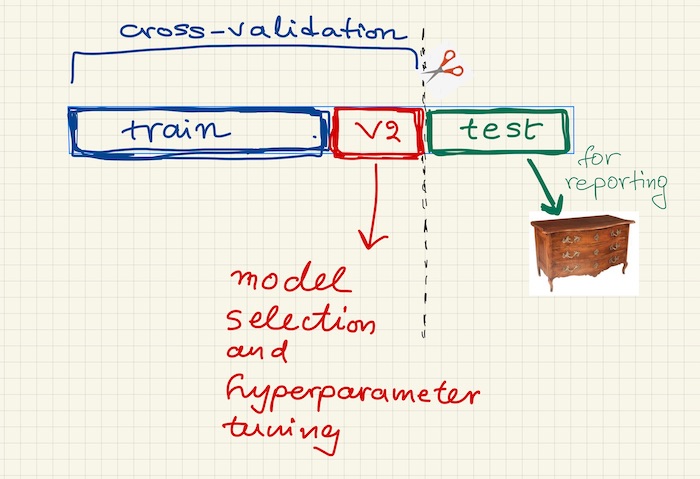 cross-validation
train
V2
test
for
reporting
model
selection
and
hyperparameter
tuning